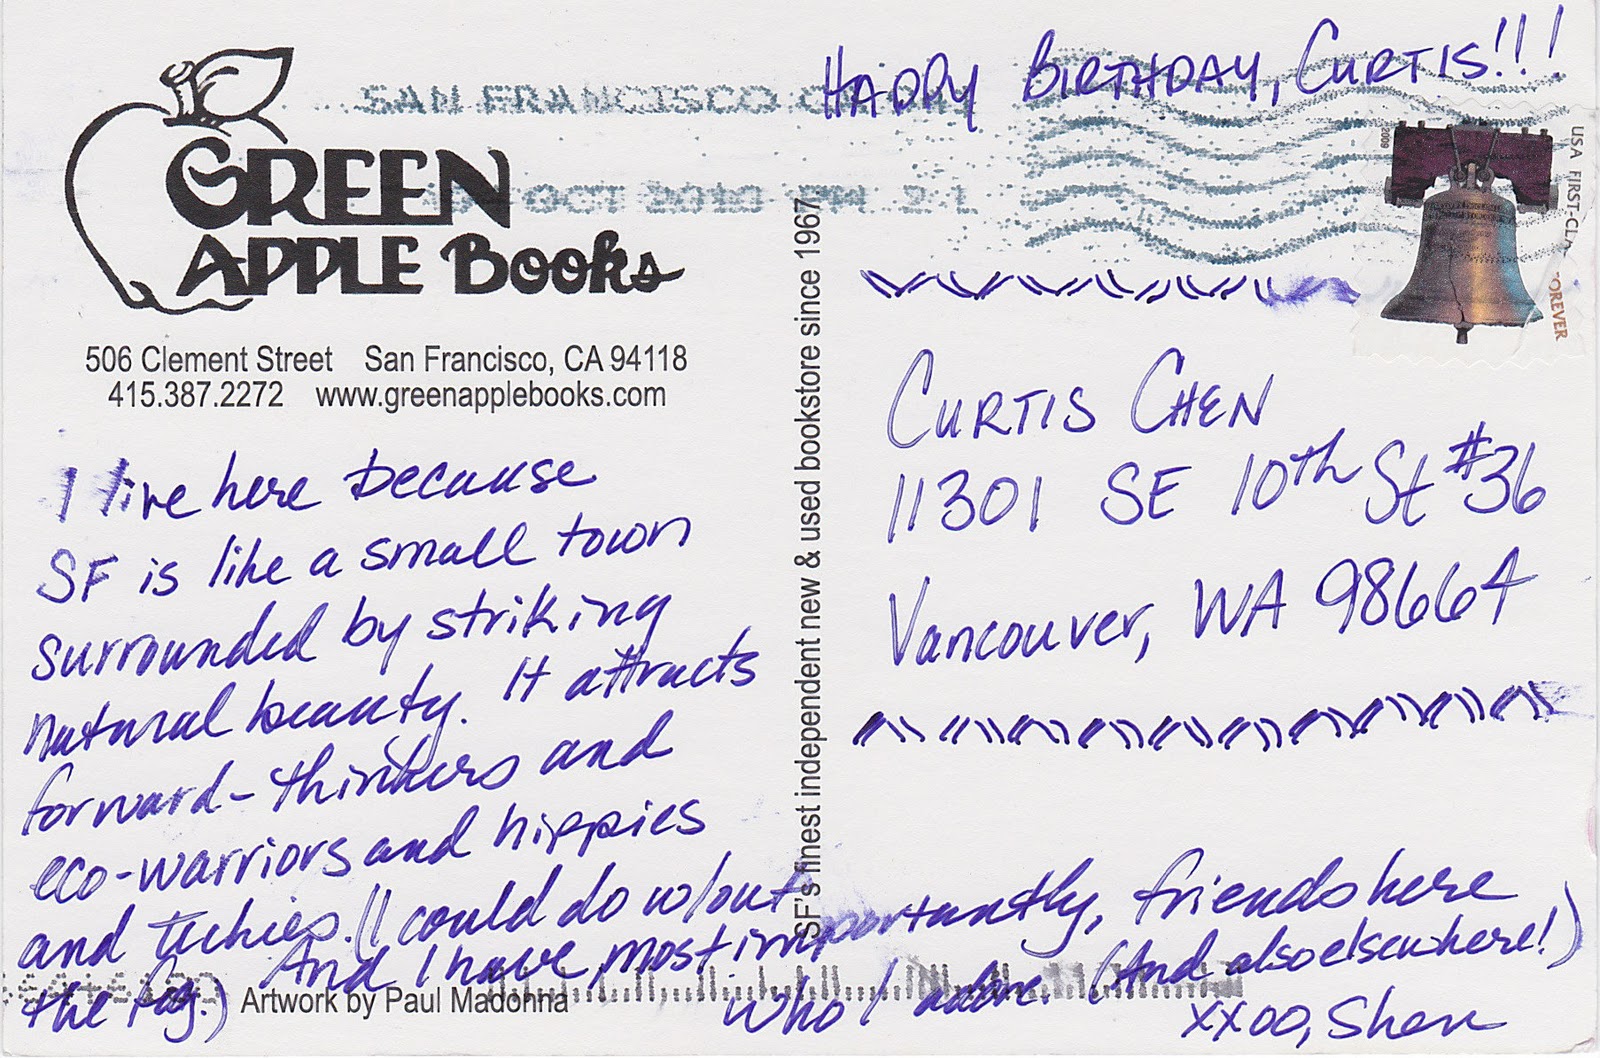 HAPPY BIRTHDAY, CURTIS!!!
SAN FRANCISCO
OCT 2010 PM
2009
USA FIRST-CL
FOREVER
GREEN
APPLE BOOKS
506 Clement Street San Francisco, CA 94118
415.387.2272 www.greenapplebooks.com
I live here because
SF is like a small town
surrounded by striking
natural beauty. It attracts
forward-thinkers and
eco-warriors and hippies
and techies. (I could do w/out
the fog.) And I have, most importantly, friends here
who I adore. (And also elsewhere!)
xxoo, Shen
Artwork by Paul Madonna
SF's finest independent new & used bookstore since 1967
CURTIS CHEN
11301 SE 10th St #36
Vancouver, WA 98664